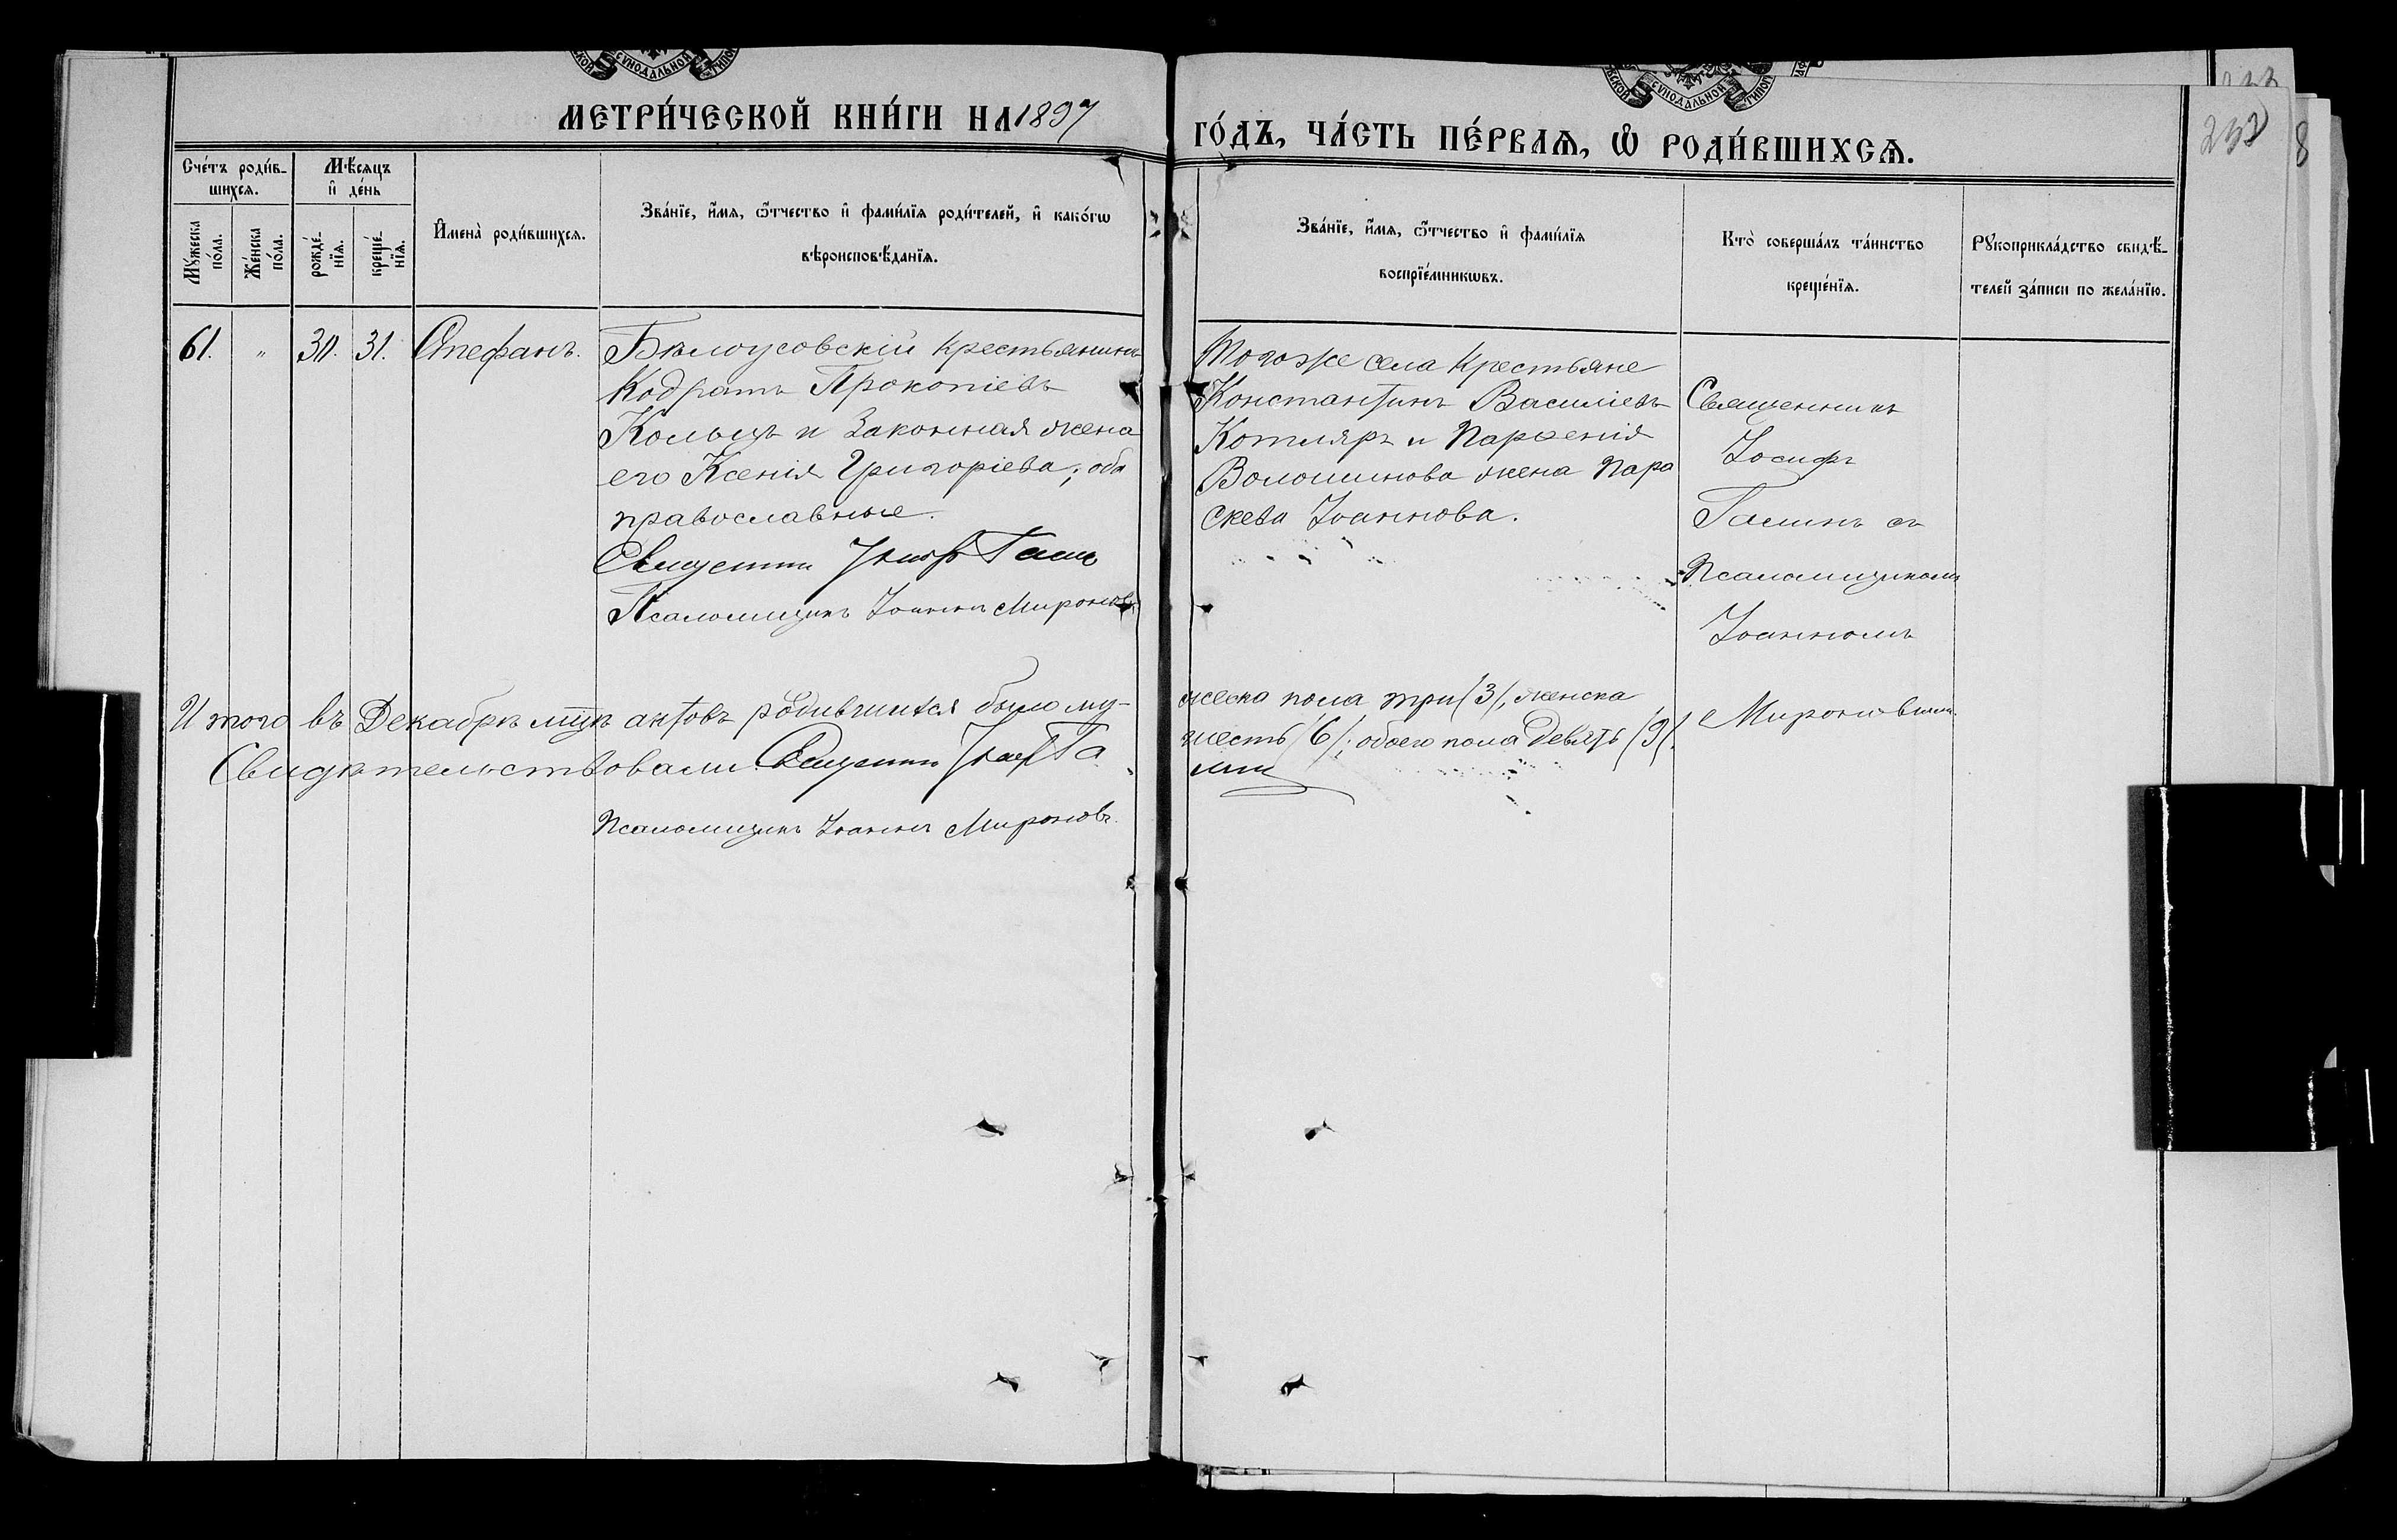 МЕТРИ́ЧЕСКОЙ КНИ́ГИ НА 1897
ГО́ДЪ, ЧА́СТЬ ПЕ́РВАѦ, Ѡ҆ РОДИ́ВШИХСѦ.
Сче́тъ роди́в-
шихсѧ.
Мѣ́сѧцъ
и҆ де́нь
Мꙋ́жеска
по́ла.
Же́нска
по́ла.
рожде́-
нїѧ.
креще́-
нїѧ.
И҆мена̀ роди́вшихсѧ.
Зва́нїе, и҆́мѧ, ѻ҆́тчество и҆ фами́лїѧ роди́телей, и҆ како́гѡ
вѣроисповѣ́данїѧ.
Зва́нїе, и҆́мѧ, ѻ҆́тчество и҆ фами́лїѧ
воспрїе́мникѡвъ.
Кто̀ соверша́лъ та́инство
креще́нїѧ.
Рꙋкоприкла́дство свидѣ́-
телей за́писи по жела́нїю.
61. „ 30. 31. Стефанъ.
Бѣлоусовскій крестьянинъ
Кодратъ Прокопіевъ
Кольцъ и законная жена
его Ксенія Григоріева; оба
православные.
Священникъ Іосифъ Галинъ
Псаломщикъ Іоаннъ Мироновъ
Того же села Крестьяне
Константинъ Василіевъ
Котляръ и Парѳенія
Волошинова жена Пара
скева Іоаннова.
Священникъ
Іосифъ
Галинъ съ
Псаломщикомъ
Іоанномъ
Мироновымъ.
Итого въ Декабрѣ мцѣ актовъ родившихся было му-
жеска пола три (3), женска
шесть (6); обоего пола девять (9).
Свидѣтельствовали: Священникъ Іосифъ Га
линъ
Псаломщикъ Іоаннъ Мироновъ.